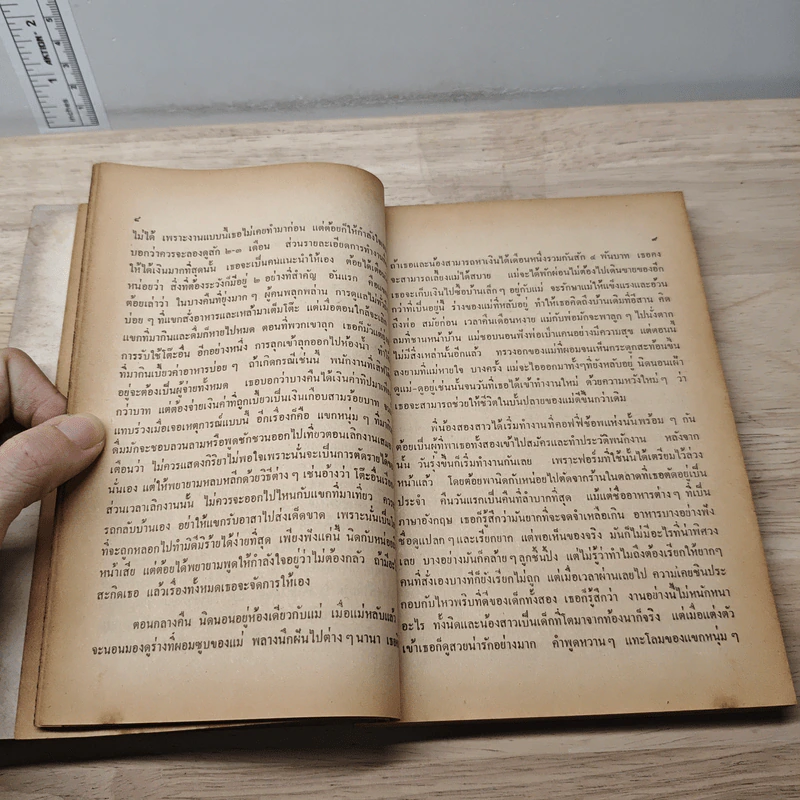 ๘
ไม่ได้ เพราะงานแบบนี้เธอไม่เคยทำมาก่อน แต่ต้อยก็ให้กำลังใจ
บอกว่าควรจะลองดูสัก ๒-๓ เดือน ส่วนรายละเอียดการทำงาน
ให้ได้เงินมากที่สุดนั้น เธอจะเป็นคนแนะนำให้เอง ต้อยได้เตือน
หน่อยว่า สิ่งที่ต้องระวังก็มีอยู่ ๒ อย่างที่สำคัญ อันแรก คือ
ต้อยเล่าว่า ในบางคืนที่ยุ่งมาก ๆ ผู้คนพลุกพล่าน การดูแลไม่
บ่อย ๆ ที่แขกสั่งอาหารและเหล้ามาเต็มโต๊ะ แต่เมื่อตอนใกล้จะ
แขกที่มากินและดื่มก็หายไปหมด ตอนที่พวกเขาลุก เธอก็มัวแต่
การรับใช้โต๊ะอื่น อีกอย่างหนึ่ง การลุกเข้าลุกออกไปห้องน้ำ
ที่มากินเบี้ยวค่าอาหารบ่อย ๆ ถ้าเกิดกรณีเช่นนี้ พนักงานที่
อยู่จะต้องเป็นผู้จ่ายทั้งหมด เธอบอกว่าบางคืนได้เงินค่าทิปมา
กว่าบาท แต่ต้องจ่ายเงินค่าที่ถูกเบี้ยวเป็นเงินเกือบสามร้อยบาท
แทบร่วงเมื่อเจอเหตุการณ์แบบนี้ อีกเรื่องก็คือ แขกหนุ่ม ๆ ที่มา
ดื่มมักจะชอบลวนลามหรือพูดชักชวนออกไปเที่ยวตอนเลิกงาน
เตือนว่า ไม่ควรแสดงกิริยาไม่พอใจเพราะนั่นจะเป็นการตัดรายได้
นั่นเอง แต่ให้พยายามหลบหลีกด้วยวิธีต่าง ๆ เช่นอ้างว่า โต๊ะอื่น
ส่วนเวลาเลิกงานนั้น ไม่ควรจะออกไปไหนกับแขกที่มาเที่ยว ควร
รถกลับบ้านเอง อย่าให้แขกรับอาสาไปส่งเด็ดขาด เพราะนั่นเป็น
ที่จะถูกหลอกไปทำมิดีมิร้ายได้ง่ายที่สุด เพียงฟังแค่นี้ นิดกับหน่อย
หน้าเสีย แต่ต้อยได้พยายามพูดให้กำลังใจอยู่ว่าไม่ต้องกลัว ถ้ามี
สะกิดเธอ แล้วเรื่องทั้งหมดเธอจะจัดการให้เอง
ตอนกลางคืน นิดนอนอยู่ห้องเดียวกับแม่ เมื่อแม่หลับแล้ว
จะนอนมองดูร่างที่ผอมซูบของแม่ พลางนึกฝันไปต่าง ๆ นานา
๙
ถ้าเธอและน้องสามารถหาเงินได้เดือนหนึ่งรวมกันสัก ๔ พันบาท เธอคง
จะสามารถเลี้ยงแม่ได้สบาย แม่จะได้พักผ่อนไม่ต้องไปเดินขายของอีก
เธอจะเก็บเงินไปซื้อบ้านเล็ก ๆ อยู่กับแม่ จะรักษาแม่ให้แข็งแรงและอ้วน
กว่าที่เป็นอยู่นี้ ร่างของแม่ที่หลับอยู่ ทำให้เธอคิดถึงบ้านเดิมที่อีสาน คิด
ถึงพ่อ สมัยก่อน เวลาคืนเดือนหงาย แม่กับพ่อมักจะพาลูก ๆ ไปนั่งตาก
ลมที่ชานหน้าบ้าน แม่ชอบนอนฟังพ่อเป่าแคนอย่างมีความสุข แต่ตอนนี้
ไม่มีสิ่งเหล่านั้นอีกแล้ว ทรวงอกของแม่ที่ผอมจนเห็นกระดูกสะท้อนขึ้น
ลงยามที่แม่หายใจ บางครั้ง แม่จะไอออกมาทั้งๆที่ยังหลับอยู่ นิดนอนเฝ้า
ดูแม่-ดูอยู่เช่นนั้นจนวันที่เธอได้เข้าทำงานใหม่ ด้วยความหวังใหม่ๆ ว่า
เธอจะสามารถช่วยให้ชีวิตในบั้นปลายของแม่ดีขึ้นกว่าเดิม
พี่น้องสองสาวได้เริ่มทำงานที่คอฟฟี่ช็อพแห่งนั้นพร้อม ๆ กัน
ต้อยเป็นผู้ที่พาเธอทั้งสองเข้าไปสมัครและทำประวัติพนักงาน หลังจาก
นั้น วันรุ่งขึ้นก็เริ่มทำงานกันเลย เพราะฟอร์มที่ใช้นั้นได้เตรียมไว้ล่วง
หน้าแล้ว โดยต้อยพานิดกับหน่อยไปตัดจากร้านในตลาดที่เธอตัดอยู่เป็น
ประจำ คืนวันแรกเป็นคืนที่ลำบากที่สุด แม้แต่ชื่ออาหารต่างๆ ที่เป็น
ภาษาอังกฤษ เธอก็รู้สึกว่ามันยากที่จะจดจำเหลือเกิน อาหารบางอย่างฟัง
ชื่อดูแปลกๆและเรียกยาก แต่พอเห็นของจริง มันก็ไม่มีอะไรที่น่าพิศวง
เลย บางอย่างมันก็คล้ายๆลูกชิ้นปิ้ง แต่ไม่รู้ว่าทำไมถึงต้องเรียกให้ยากๆ
คนที่สั่งเองบางทีก็ยังเรียกไม่ถูก แต่เมื่อเวลาผ่านเลยไป ความเคยชินประ
กอบกับไหวพริบที่ดีของเด็กทั้งสอง เธอก็รู้สึกว่า งานอย่างนี้ไม่หนักหนา
อะไร ทั้งนิดและน้องสาวเป็นเด็กที่โตมาจากท้องนาก็จริง แต่เมื่อแต่งตัว
เข้าเธอก็ดูสวยน่ารักอย่างมาก คำพูดหวานๆ แทะโลมของแขกหนุ่ม ๆ
inches
1
2
ACTION
4
5